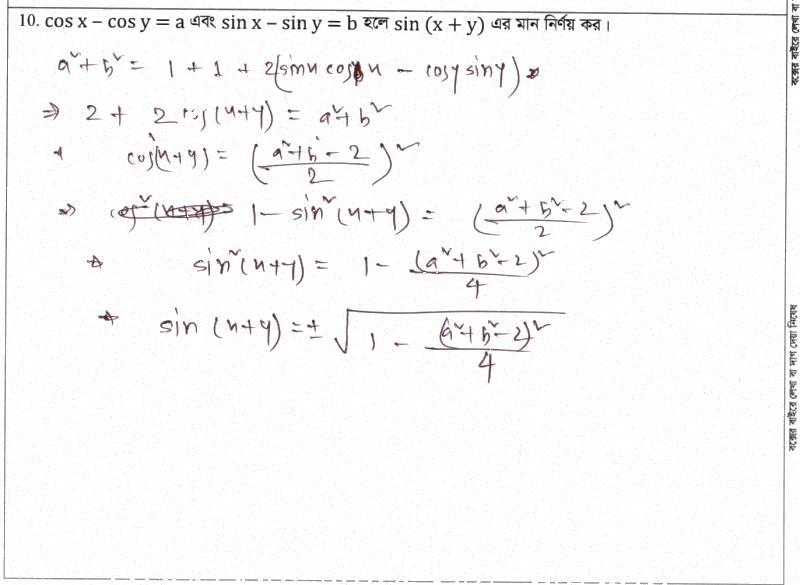 10. cos x – cos y = a এবং sin x – sin y = b হলে sin (x + y) এর মান নির্ণয় কর।
a² + b² = 1 + 1 + 2(sinx cosx – cosy siny)
⇒ 2 + 2 cos(x+y) = a²+b²
cos²(x+y) = ((a²+b²-2)/2)²
⇒ 1 – sin²(x+y) = ((a²+b²-2)/2)²
⇒ sin²(x+y) = 1 – (a²+b²-2)²/4
⇒ sin (x+y) = ± √(1 – (a²+b²-2)²/4)
বক্সের বাইরে লেখা বা দাগ দেয়া নিষেধ
বক্সের বাইরে লেখা বা